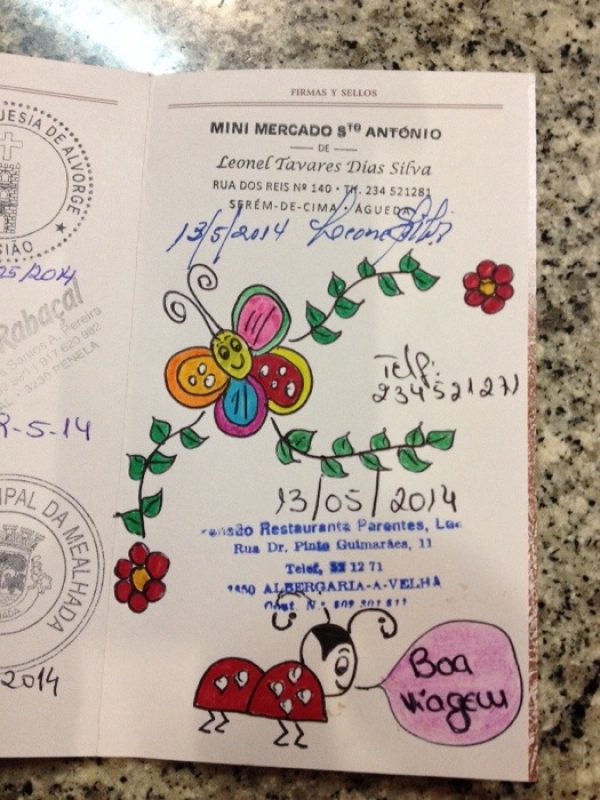 UESIA DE ALVORGE
SIÃO
25/2014
Rabaçal
Santos A. Pereira
917 620 992
3230 PENELA
2-5-14
IPAL DA MEALHADA
2014
FIRMAS Y SELLOS
MINI MERCADO STO ANTÓNIO
DE
Leonel Tavares Dias Silva
RUA DOS REIS Nº 140 · Tlf. 234 521281
SERÉM-DE-CIMA · ÁGUEDA
13/5/2014 Leonel Silva
Telf:
234521271
13/05/2014
Pensão Restaurante Parentes, Lda
Rua Dr. Pinto Guimarães, 11
Telef. 52 12 71
3850 ALBERGARIA-A-VELHA
Cont. N.º 502 301 511
Boa
Viagem